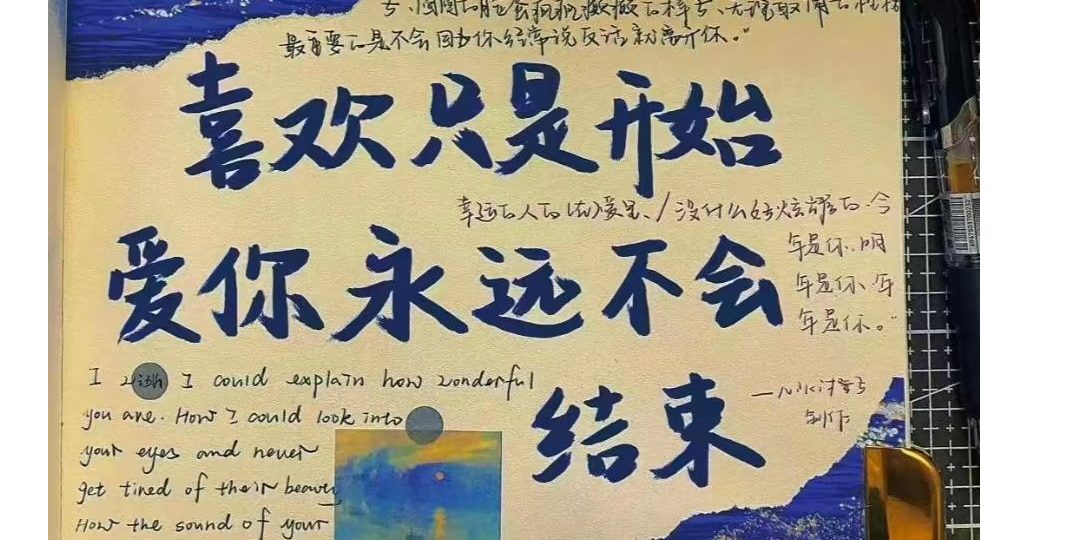 最重要的是不会因为你经常说反话就离开你。”
喜欢只是开始
幸运的人的 爱里、/没什么好炫耀的.今
年是你.明
年是你、年
年是你。”
爱你永远不会
结束
制作
I wish I could explain how wonderful
you are. How I could look into
your eyes and never
get tired of their beauty
How the sound of your